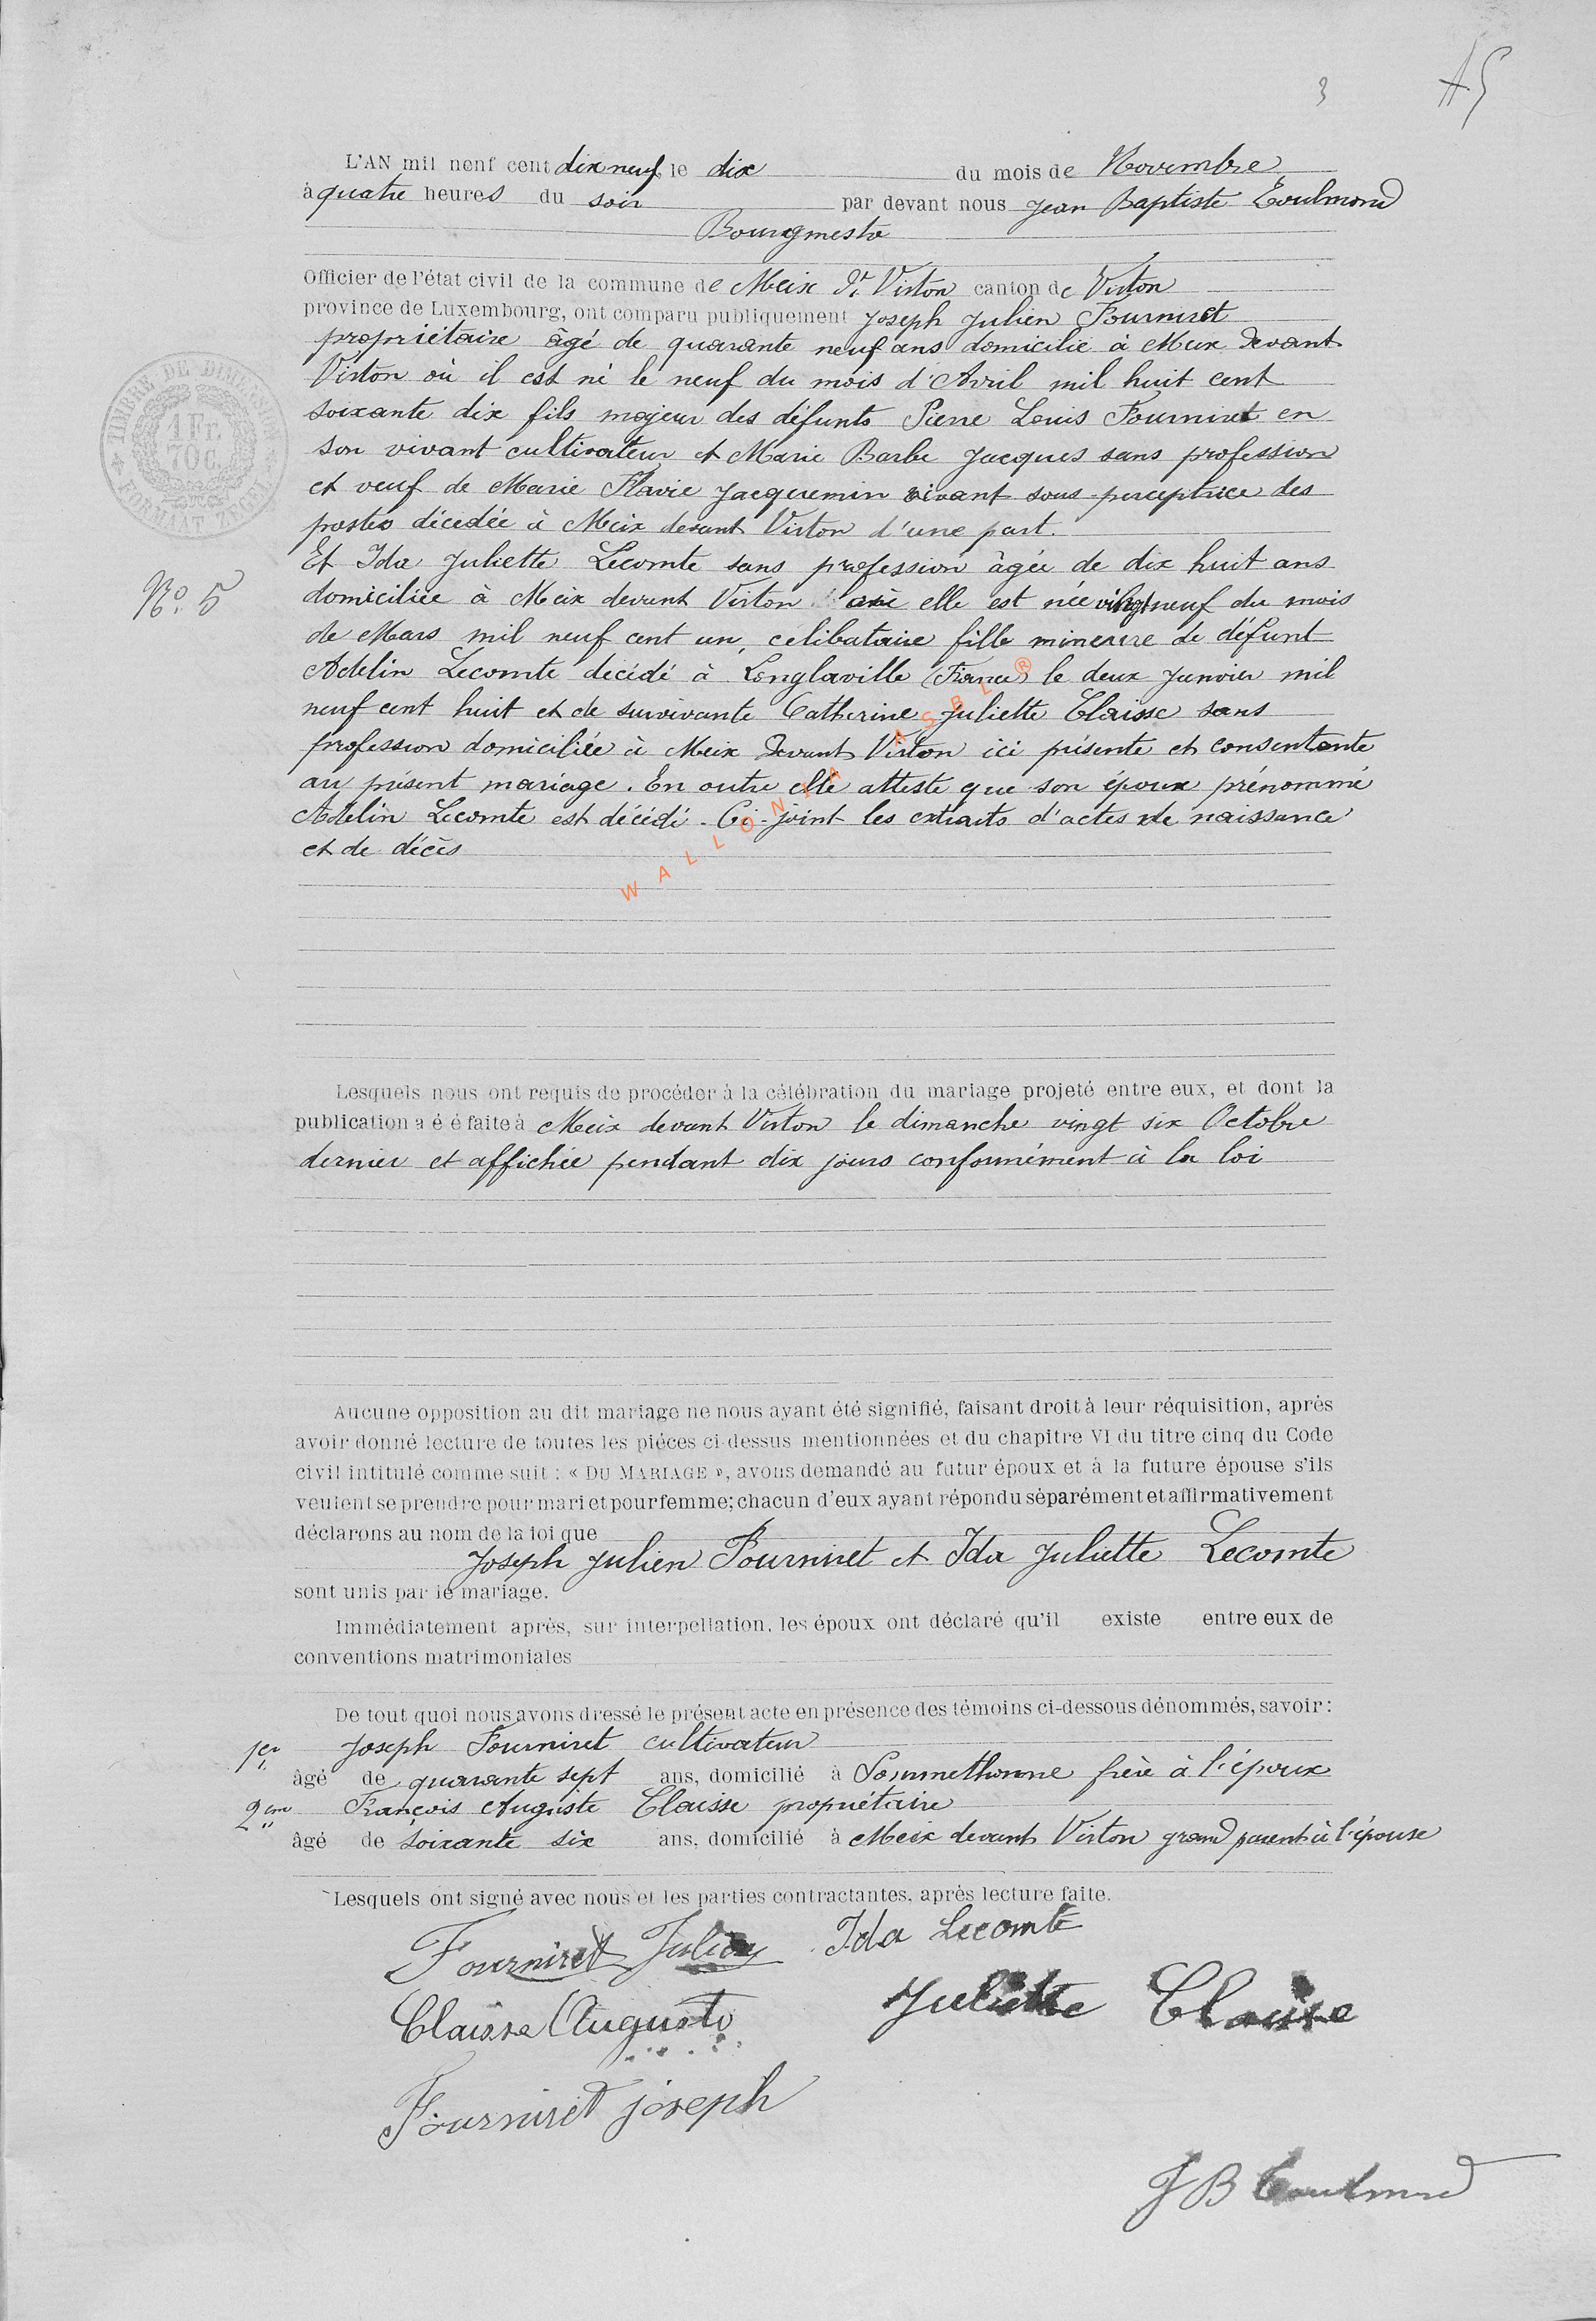 3
A5
L'AN mil neuf cent dix neuf, le dix du mois de Novembre
à quatre heures du soir par devant nous Jean Baptiste Goulmond
Bourgmestre
Officier de l'état civil de la commune de Meix dt Virton canton de Virton
province de Luxembourg, ont comparu publiquement Joseph Julien Fourniret
propriétaire âgé de quarante neuf ans domicilié à Meix devant
Virton où il est né le neuf du mois d'Avril mil huit cent
soixante dix fils majeur des défunts Pierre Louis Fourniret en
son vivant cultivateur et Marie Barbe Jacques sans profession
et veuf de Marie Flavie Jacquemin vivant sous-perceptrice des
postes décédée à Meix devant Virton d'une part.
Et Ida Juliette Lecomte sans profession âgée de dix huit ans
No. 5
domiciliée à Meix devant Virton où elle est née vingt neuf du mois
de Mars mil neuf cent un, célibataire fille mineure de défunt
Adelin Lecomte décédé à Longlaville (France) le deux Janvier mil
neuf cent huit et de survivante Catherine Juliette Claisse sans
profession domiciliée à Meix devant Virton ici présente et consentante
au présent mariage. En outre elle atteste que son époux prénommé
Adelin Lecomte est décédé. Ci-joint les extraits d'actes de naissance
et de décès
WALLONIA ASBL ®
TIMBRE DE DIMENSION
1 Fr.
70 C.
Lesquels nous ont requis de procéder à la célébration du mariage projeté entre eux, et dont la
publication a é é faite à Meix devant Virton le dimanche vingt six Octobre
dernier et affichée pendant dix jours conformément à la loi
Aucune opposition au dit mariage ne nous ayant été signifié, faisant droit à leur réquisition, après
avoir donné lecture de toutes les pièces ci-dessus mentionnées et du chapitre VI du titre cinq du Code
civil intitulé comme suit : « DU MARIAGE », avons demandé au futur époux et à la future épouse s'ils
veulent se prendre pour mari et pour femme; chacun d'eux ayant répondu séparément et affirmativement
déclarons au nom de la loi que
Joseph Julien Fourniret et Ida Juliette Lecomte
sont unis par le mariage.
Immédiatement après, sur interpellation, les époux ont déclaré qu'il existe entre eux de
conventions matrimoniales
De tout quoi nous avons dressé le présent acte en présence des témoins ci-dessous dénommés, savoir :
1er Joseph Fourniret cultivateur
âgé de quarante sept ans, domicilié à Sommethonne frère à l'époux
2em François Auguste Claisse propriétaire
âgé de soixante six ans, domicilié à Meix devant Virton grand parent à l'épouse
Lesquels ont signé avec nous et les parties contractantes, après lecture faite.
Fourniret Julien Ida Lecomte
Claisse Auguste Juliette Claisse
Fourniret joseph
J B Goulmond